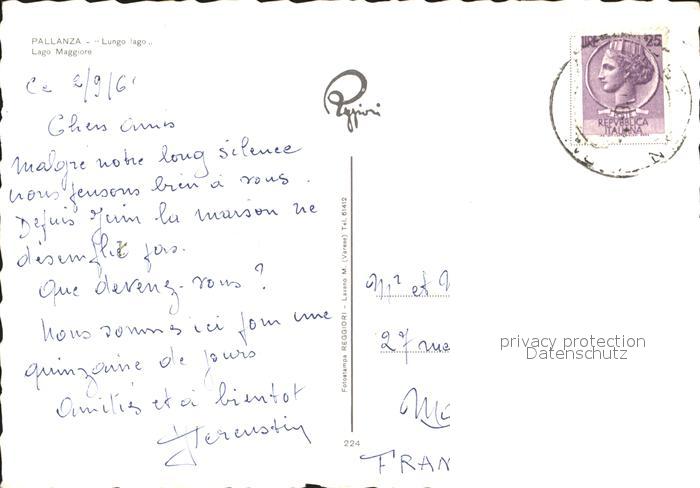 PALLANZA - "Lungo lago"
Lago Maggiore
Ce 2/9/61
Chers amis
malgré notre long silence
nous pensons bien à vous.
Depuis Juin la maison ne
désemplit pas.
Que devenez-vous ?
Nous sommes ici pour une
quinzaine de jours
Amitiés et à bientot
Reggiori
LIRE 25
REPVBBLICA
ITALIANA
Fotostampa REGGIORI - Laveno M. (Varese) Tel. 61412
224
Mr et M
27 rue
FRAN
privacy protection
Datenschutz